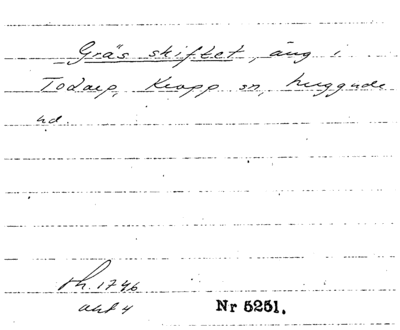 Gräs skiftet, äng i
Todarp, Kropp sn, Luggude
hd.
rh. 1746
akt 4
Nr 5251.